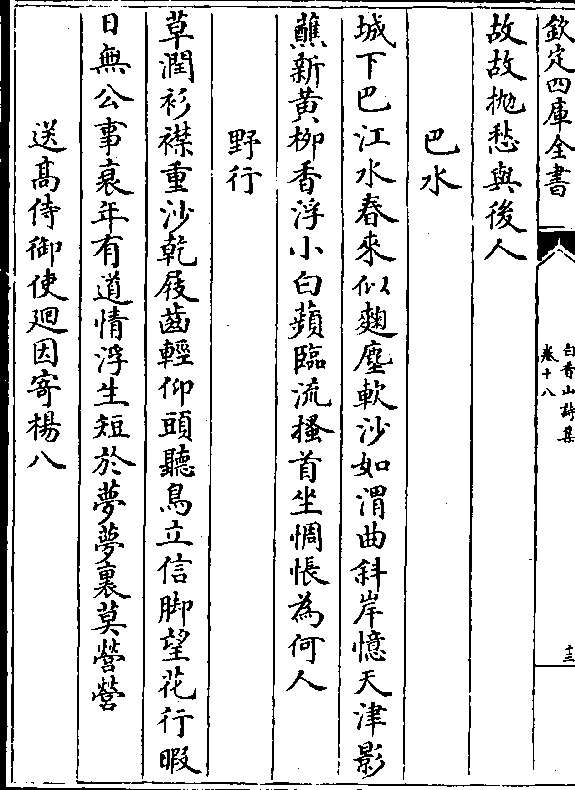 欽定四庫全書
白香山詩集
卷十八
十三
故故抛愁與後人
巴水
城下巴江水春來似麴塵軟沙如渭曲斜岸憶天津影
蘸新黄栁香浮小白蘋臨流搔首坐惆悵為何人
野行
草潤衫襟重沙乾屐齒輕仰頭聽鳥立信脚望花行暇
日無公事衰年有道情浮生短於夢夢裏莫營營
送髙侍御使廻因寄楊八